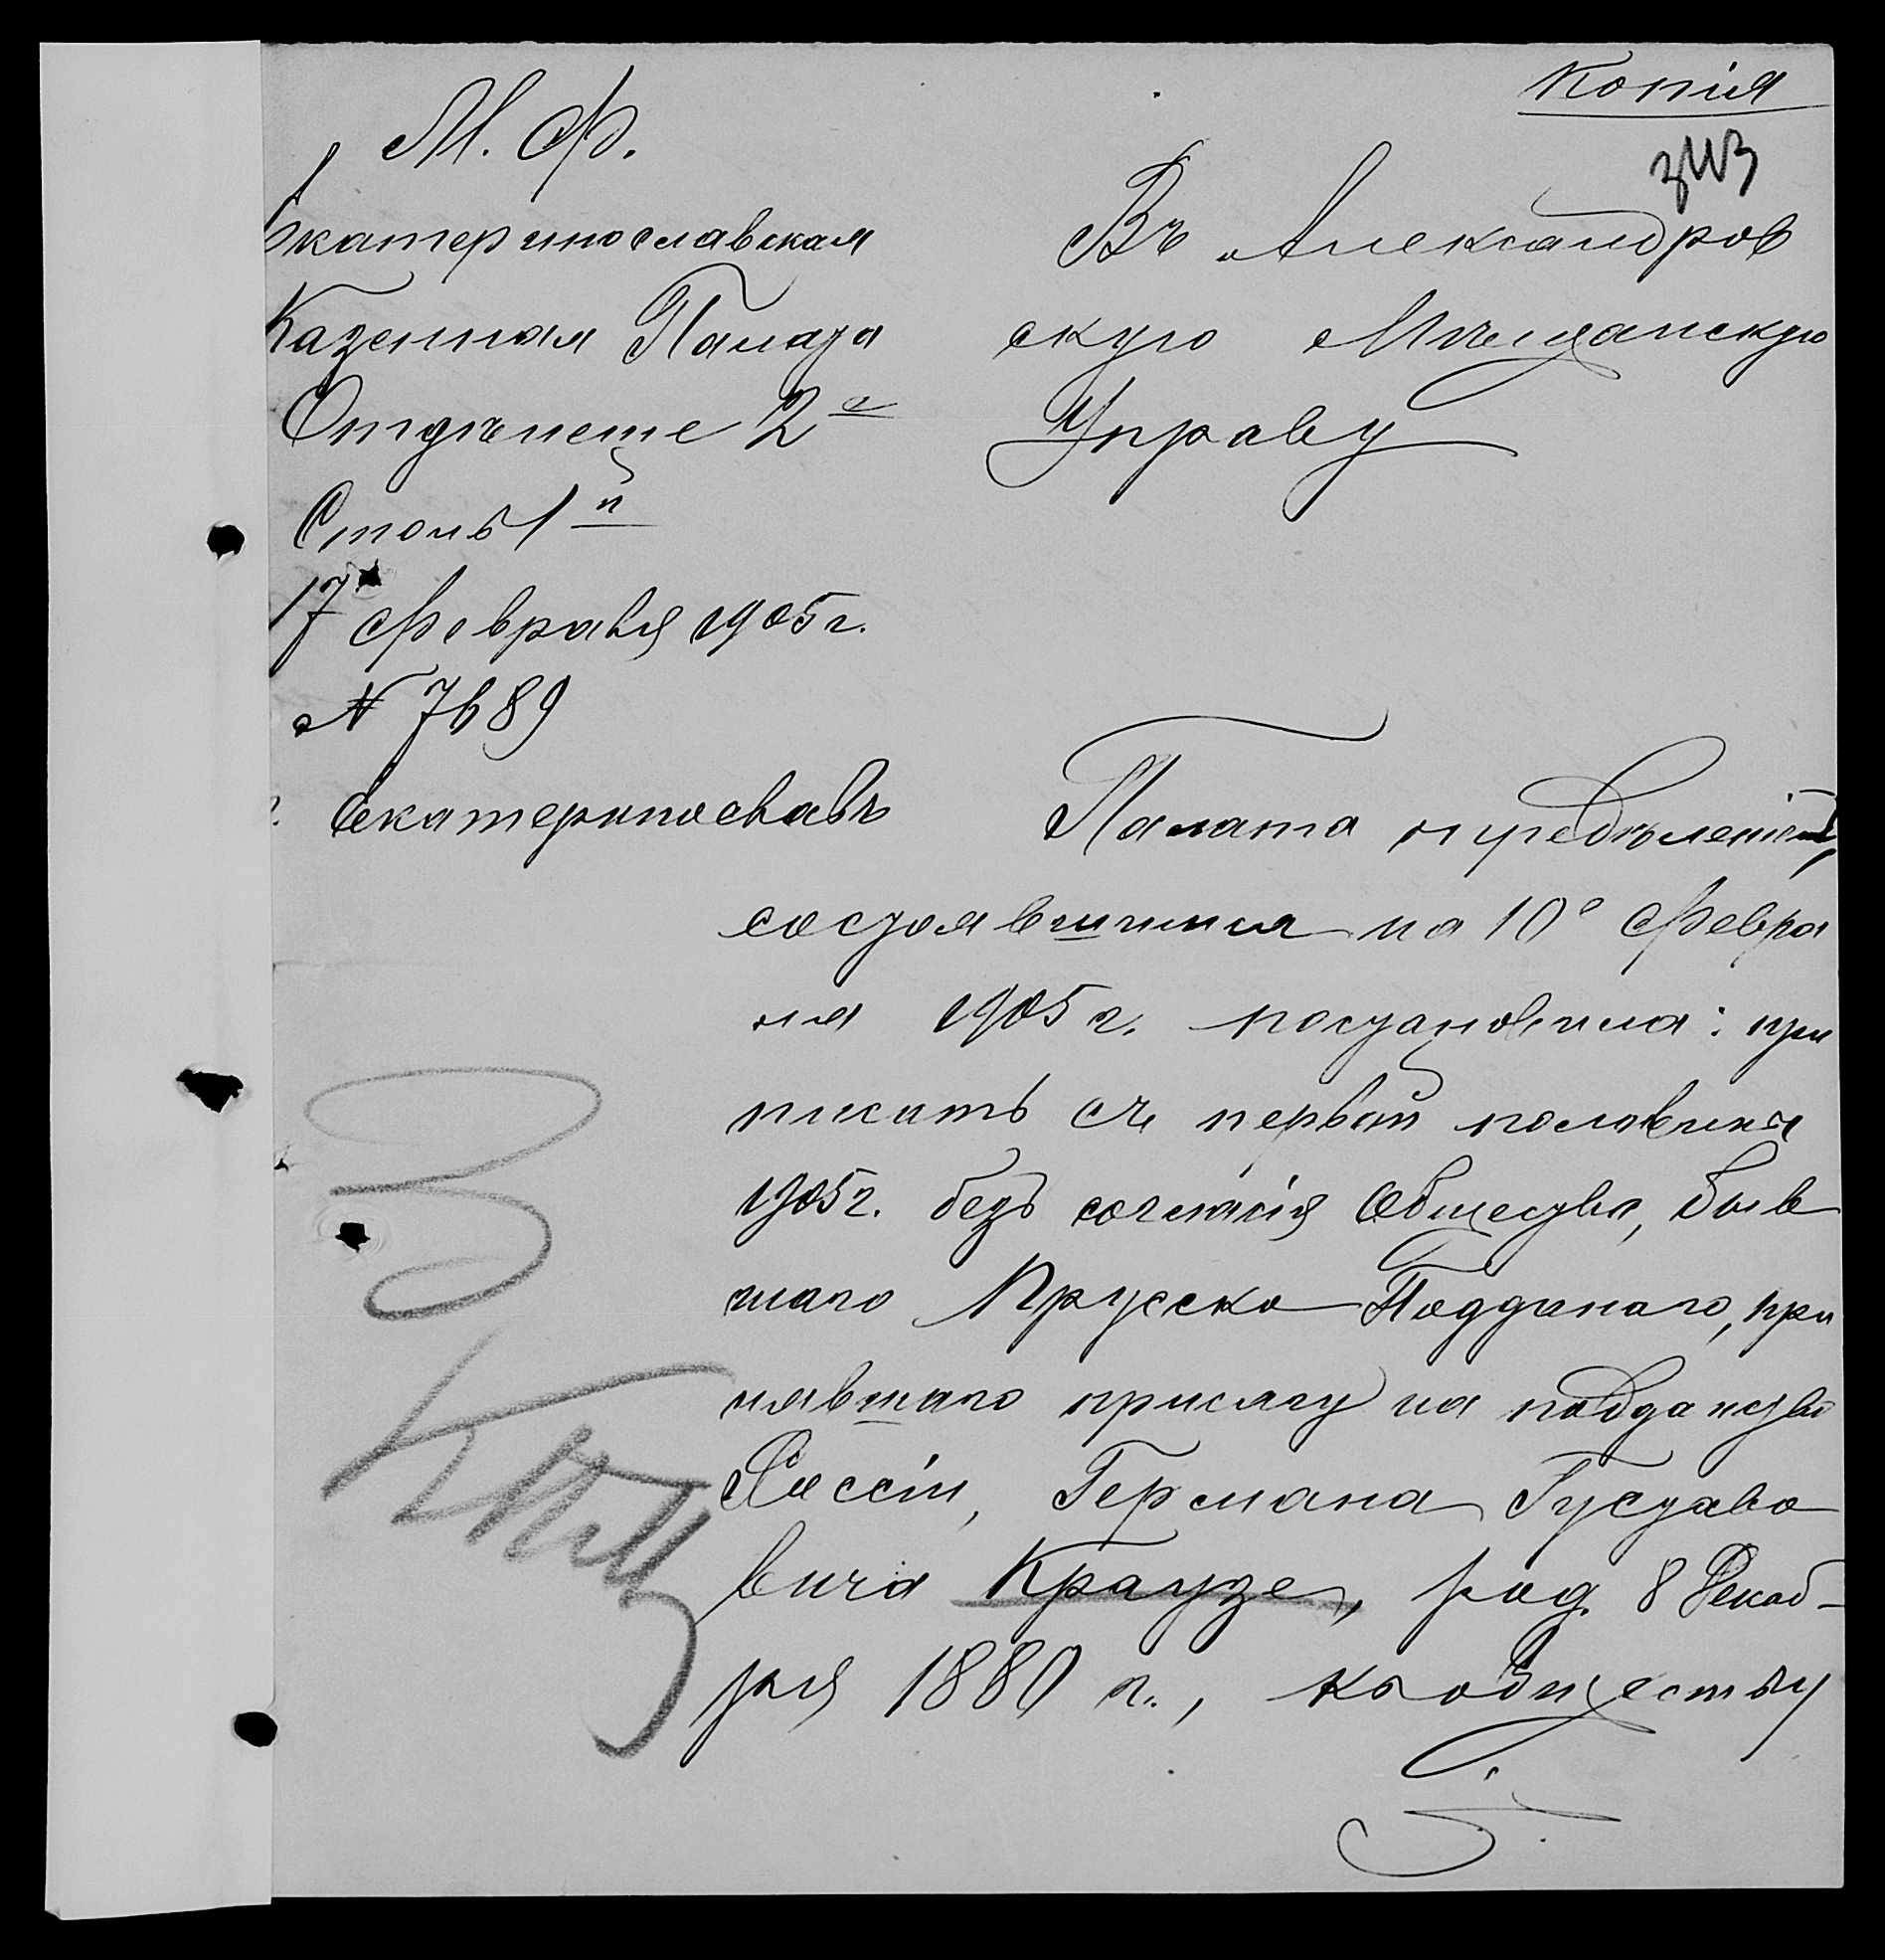 Копія
М. Ф.
Екатеринославская
Казенная Палата
Отдѣленіе 2е
Столъ 1й
17 Февраля 1905 г.
№ 7689
г. Екатеринославъ
Въ Александров
скую Мѣщанскую
Управу
Палата опредѣленіемъ,
состоявшимся на 10е Февра
ля 1905 г. постановила: при
писать съ первой половины
1905 г. безъ согласія Общества, быв
шаго Прусско-Подданаго, при
нявшаго присягу на подданство
Россіи, Германа Густаво
вича Краузе, род. 8 Декаб-
ря 1880 г., къ обществу